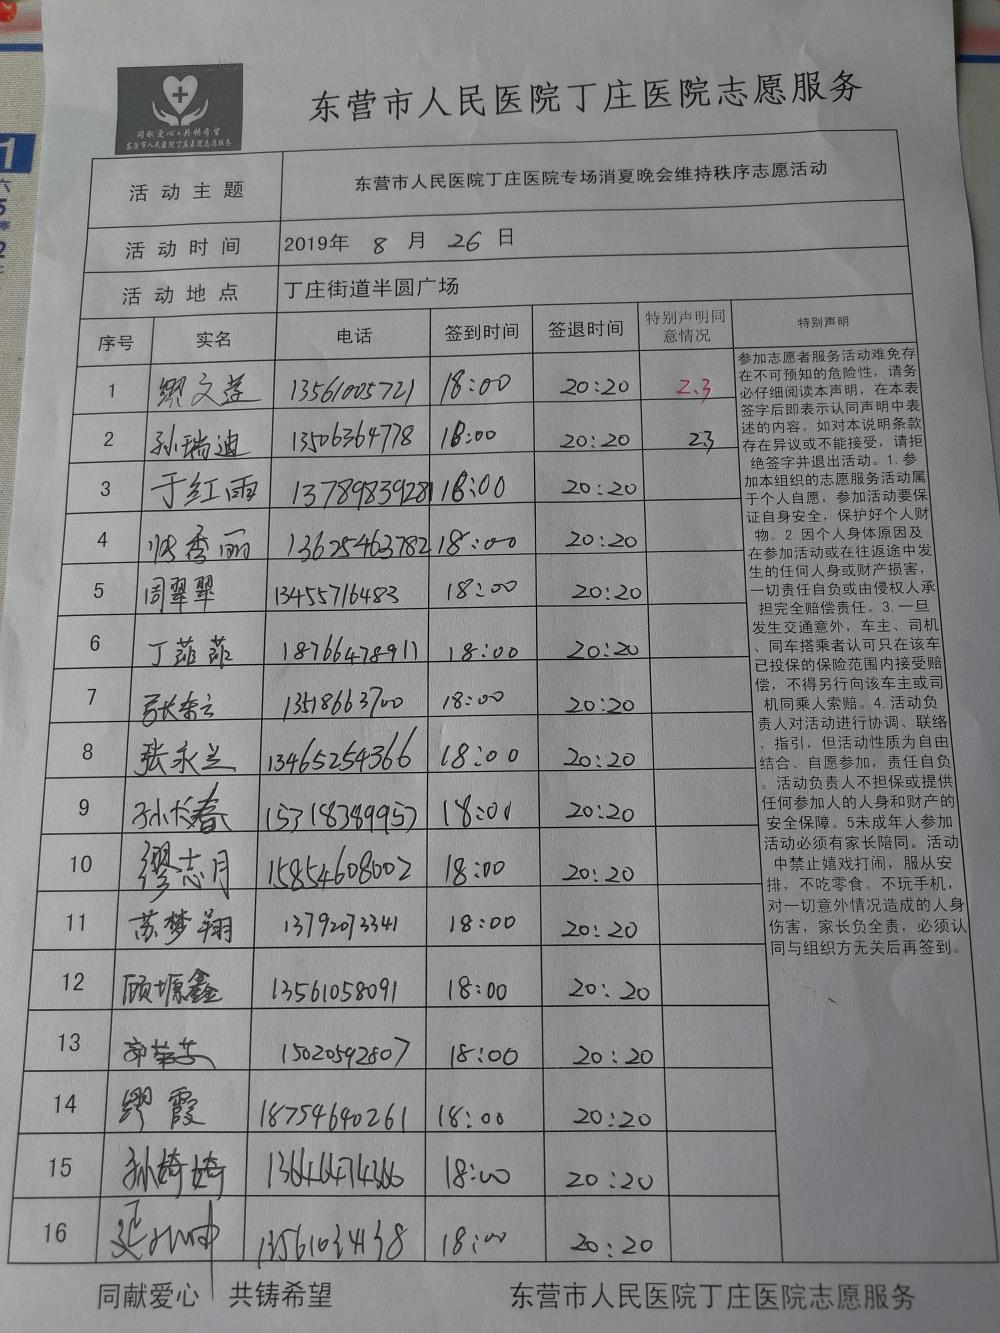 同献爱心·共铸希望
东营市人民医院丁庄医院志愿服务
东营市人民医院丁庄医院志愿服务
活动主题 东营市人民医院丁庄医院专场消夏晚会维持秩序志愿活动
活动时间 2019年 8 月 26 日
活动地点 丁庄街道半圆广场
序号 实名 电话 签到时间 签退时间 特别声明同意情况 特别声明
1 缪文莲 13561005721 18:00 20:20 2.3
2 孙瑞迪 13506364778 18:00 20:20 23
3 于红雨 13789839281 18:00 20:20
4 张秀丽 13625463782 18:00 20:20
5 周翠翠 13455716483 18:00 20:20
6 丁菲菲 18766478911 18:00 20:20
7 13518663700 18:00 20:20
8 张永兰 13465254366 18:00 20:20
9 孙长春 15318389957 18:00 20:20
10 缪志月 15854608002 18:00 20:20
11 苏梦翔 13792073341 18:00 20:20
12 顾塬鑫 13561058091 18:00 20:20
13 15020592807 18:00 20:20
14 缪霞 18754640261 18:00 20:20
15 孙婍婍 13646474366 18:00 20:20
16 18:00 20:20
参加志愿者服务活动难免存
在不可预知的危险性，请务
必仔细阅读本声明，在本表
签字后即表示认同声明中表
述的内容。如对本说明条款
存在异议或不能接受，请拒
绝签字并退出活动。1. 参
加本组织的志愿服务活动属
于个人自愿，参加活动要保
证自身安全，保护好个人财
物。2. 因个人身体原因及
在参加活动或在往返途中发
生的任何人身或财产损害，
一切责任自负或由侵权人承
担完全赔偿责任。3. 一旦
发生交通意外，车主、司机
、同车搭乘者认可只在该车
已投保的保险范围内接受赔
偿，不得另行向该车主或司
机同乘人索赔。4. 活动负
责人对活动进行协调、联络
、指引，但活动性质为自由
结合、自愿参加，责任自负
。活动负责人不担保或提供
任何参加人的人身和财产的
安全保障。5未成年人参加
活动必须有家长陪同。活动
中禁止嬉戏打闹，服从安
排，不吃零食。不玩手机，
对一切意外情况造成的人身
伤害，家长负全责，必须认
同与组织方无关后再签到。
同献爱心 共铸希望 东营市人民医院丁庄医院志愿服务